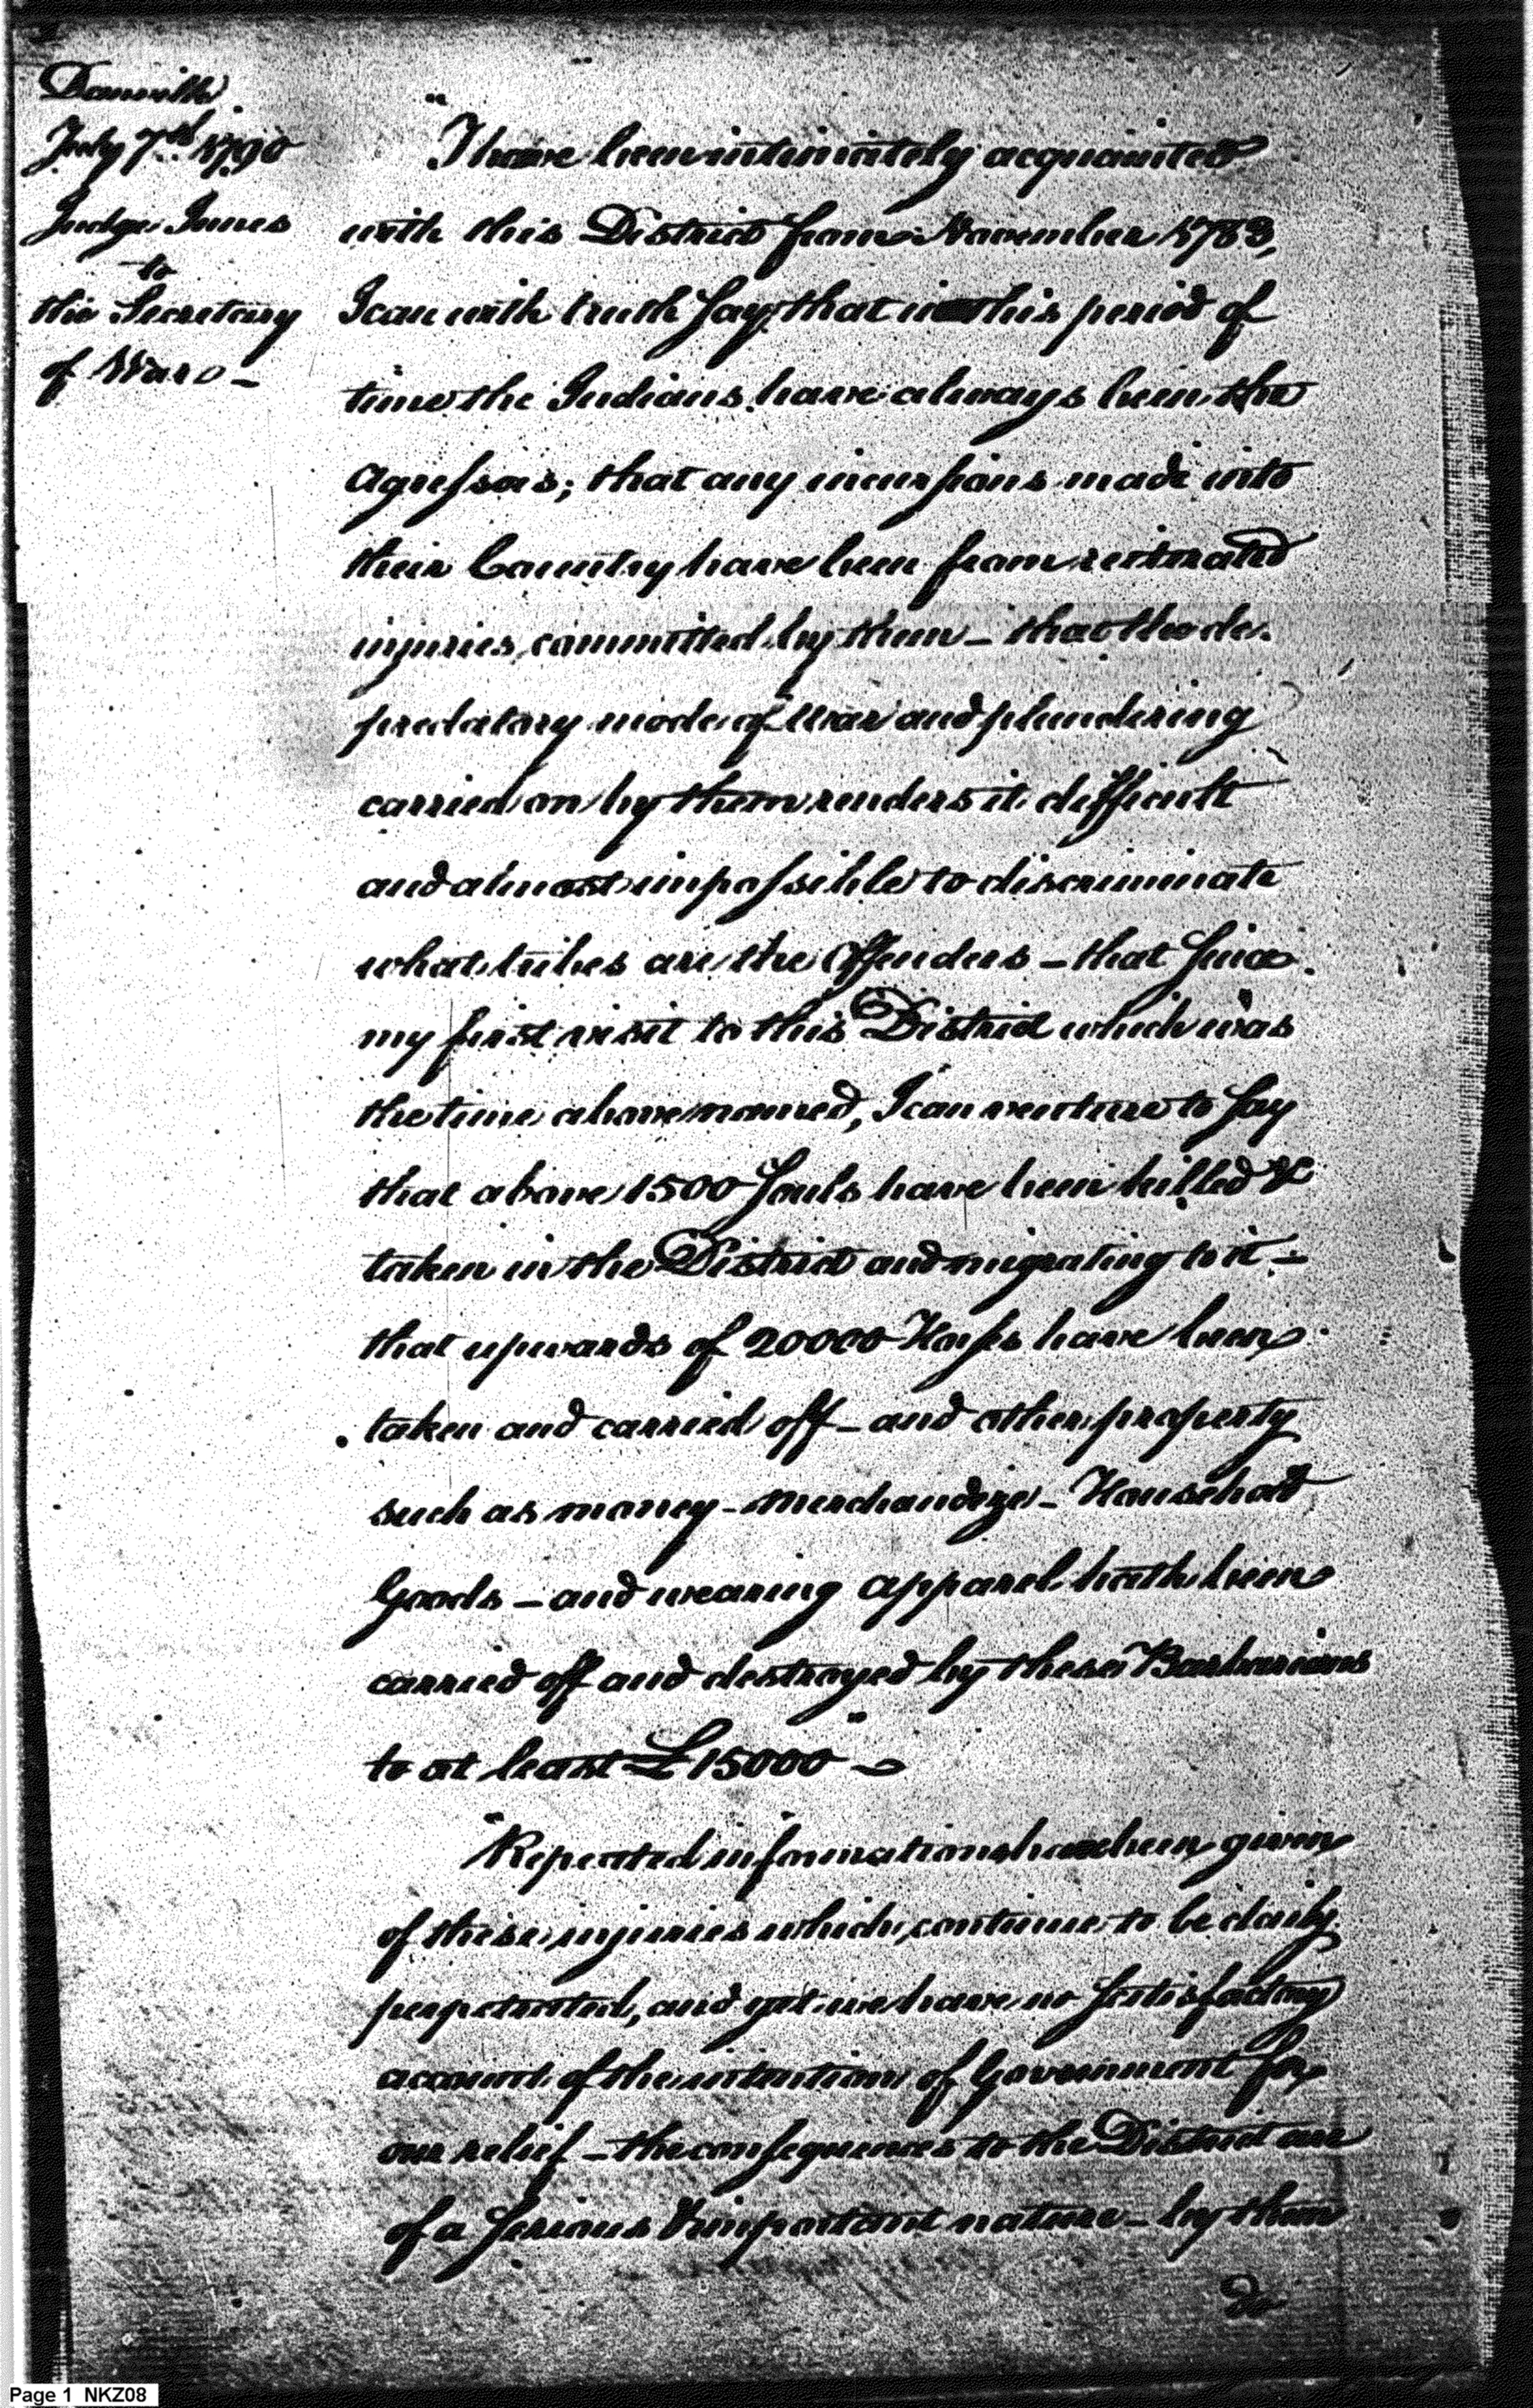 Danville
July 7th 1790
Judge Innes
to
the Secretary
of War —
"I have been intimately acquainted
with this District from November 1783,
I can with truth say that in this period of
time the Indians have always been the
Agressors; that any incursions made into
their Country have been from reiterated
injuries committed by them – that the de.
predatory mode of war and plundering
carried on by them renders it difficult
and almost impossible to discriminate
what tribes are the Offenders – that since
my first visit to this District which was
the time above named, I can venture to say
that above 1500 Souls have been killed &
taken in the District and migrating to it –
that upwards of 20000 Horses have been
taken and carried off – and other property
such as money – merchandize – Household
Goods – and wearing apparel hath been
carried off and destroyed by these Barbarians
to at least £15000"
"Repeated informations has been given
of these injuries which continue to be daily
perpetrated, and yet we have no satisfactory
account of the intention of Government for
our relief – the consequences to the District are
of a serious & important nature – by them
do
Page 1 NKZ08